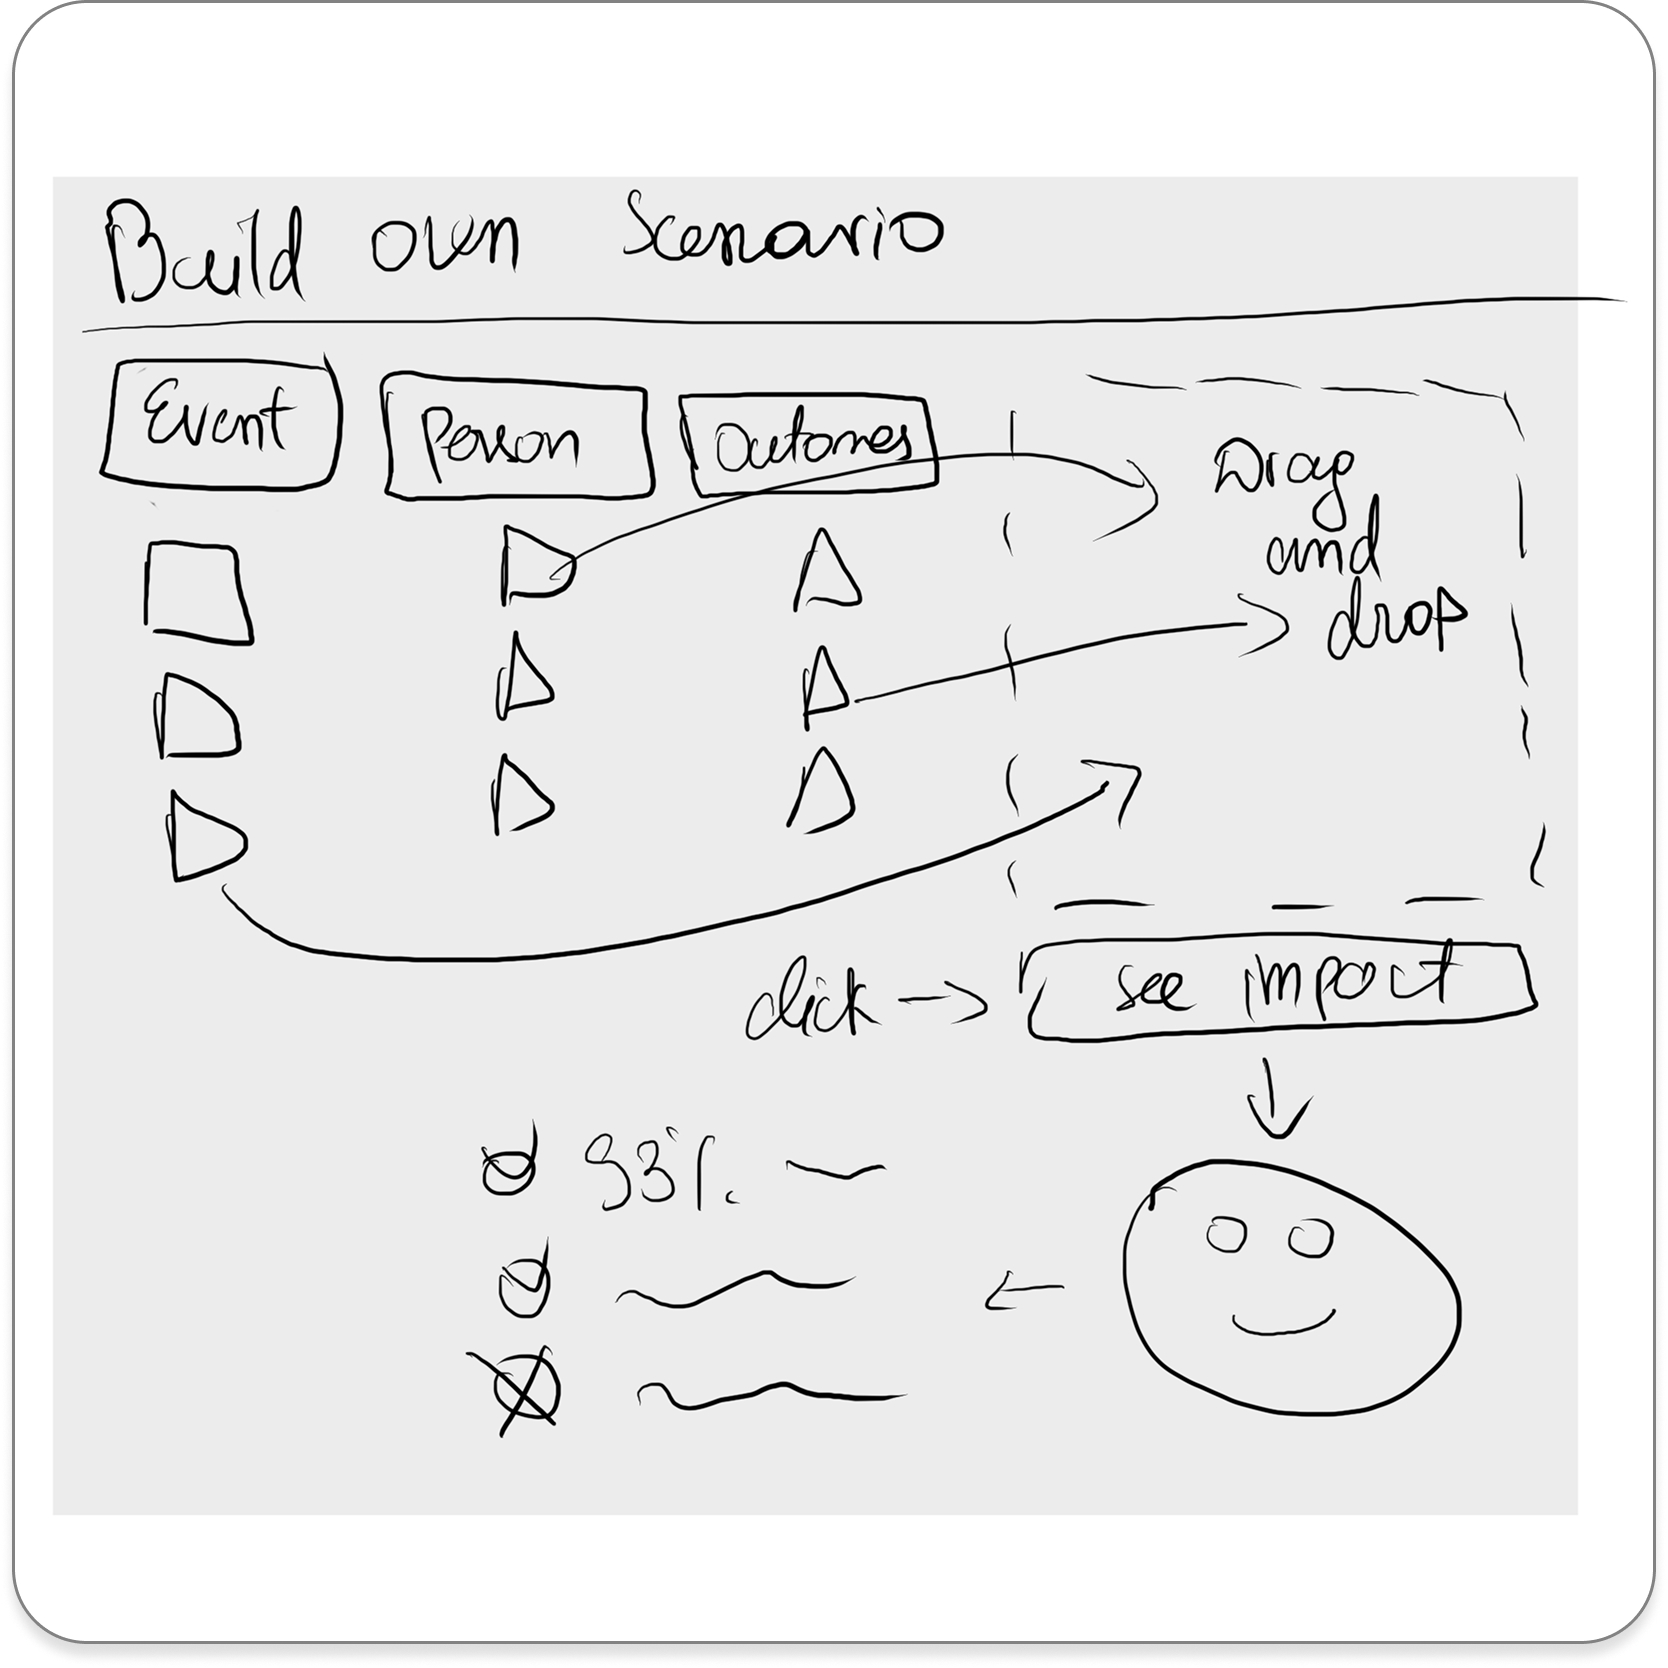 Build own Scenario
Event Person Outomes
Drag
and
drop
click → see impact
93%